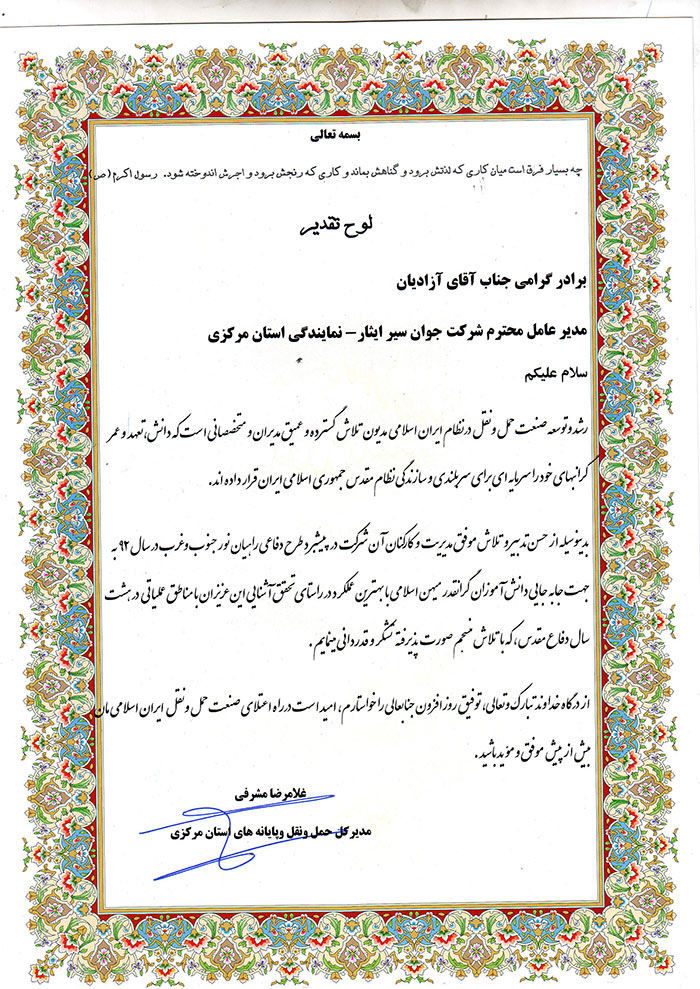 بسمه تعالی
چه بسیار فرق است میان کاری که لذتش برود و گناهش بماند و کاری که رنجش برود و اجرش اندوخته شود. رسول اکرم (ص)
لوح تقدیر
برادر گرامی جناب آقای آزادیان
مدیر عامل محترم شرکت جوان سیر ایثار – نمایندگی استان مرکزی
سلام علیکم
رشد و توسعه صنعت حمل و نقل در نظام ایران اسلامی مدیون تلاش گسترده و عمیق مدیران و متخصصانی است که دانش، تعهد و عمر
گرانبهای خود را سرمایه ای برای سربلندی و سازندگی نظام مقدس جمهوری اسلامی ایران قرار داده اند.
بدینوسیله از حسن تدبیر و تلاش موفق مدیریت و کارکنان آن شرکت در پیشبرد طرح دفاعی راهیان نور جنوب و غرب در سال ۹۲ به
جهت جابه جایی دانش آموزان گرانقدر میهن اسلامی با بهترین عملکرد در راستای تحقق آشنایی این عزیزان با مناطق عملیاتی در هشت
سال دفاع مقدس، که با تلاش منسجم صورت پذیرفته تشکر و قدردانی مینمایم.
از درگاه خداوند تبارک وتعالی، توفیق روز افزون جنابعالی را خواستارم، امید است در راه اعتلای صنعت حمل و نقل ایران اسلامی مان
بیش از پیش موفق و مؤید باشید.
غلامرضا مشرفی
مدیر کل حمل ونقل وپایانه های استان مرکزی